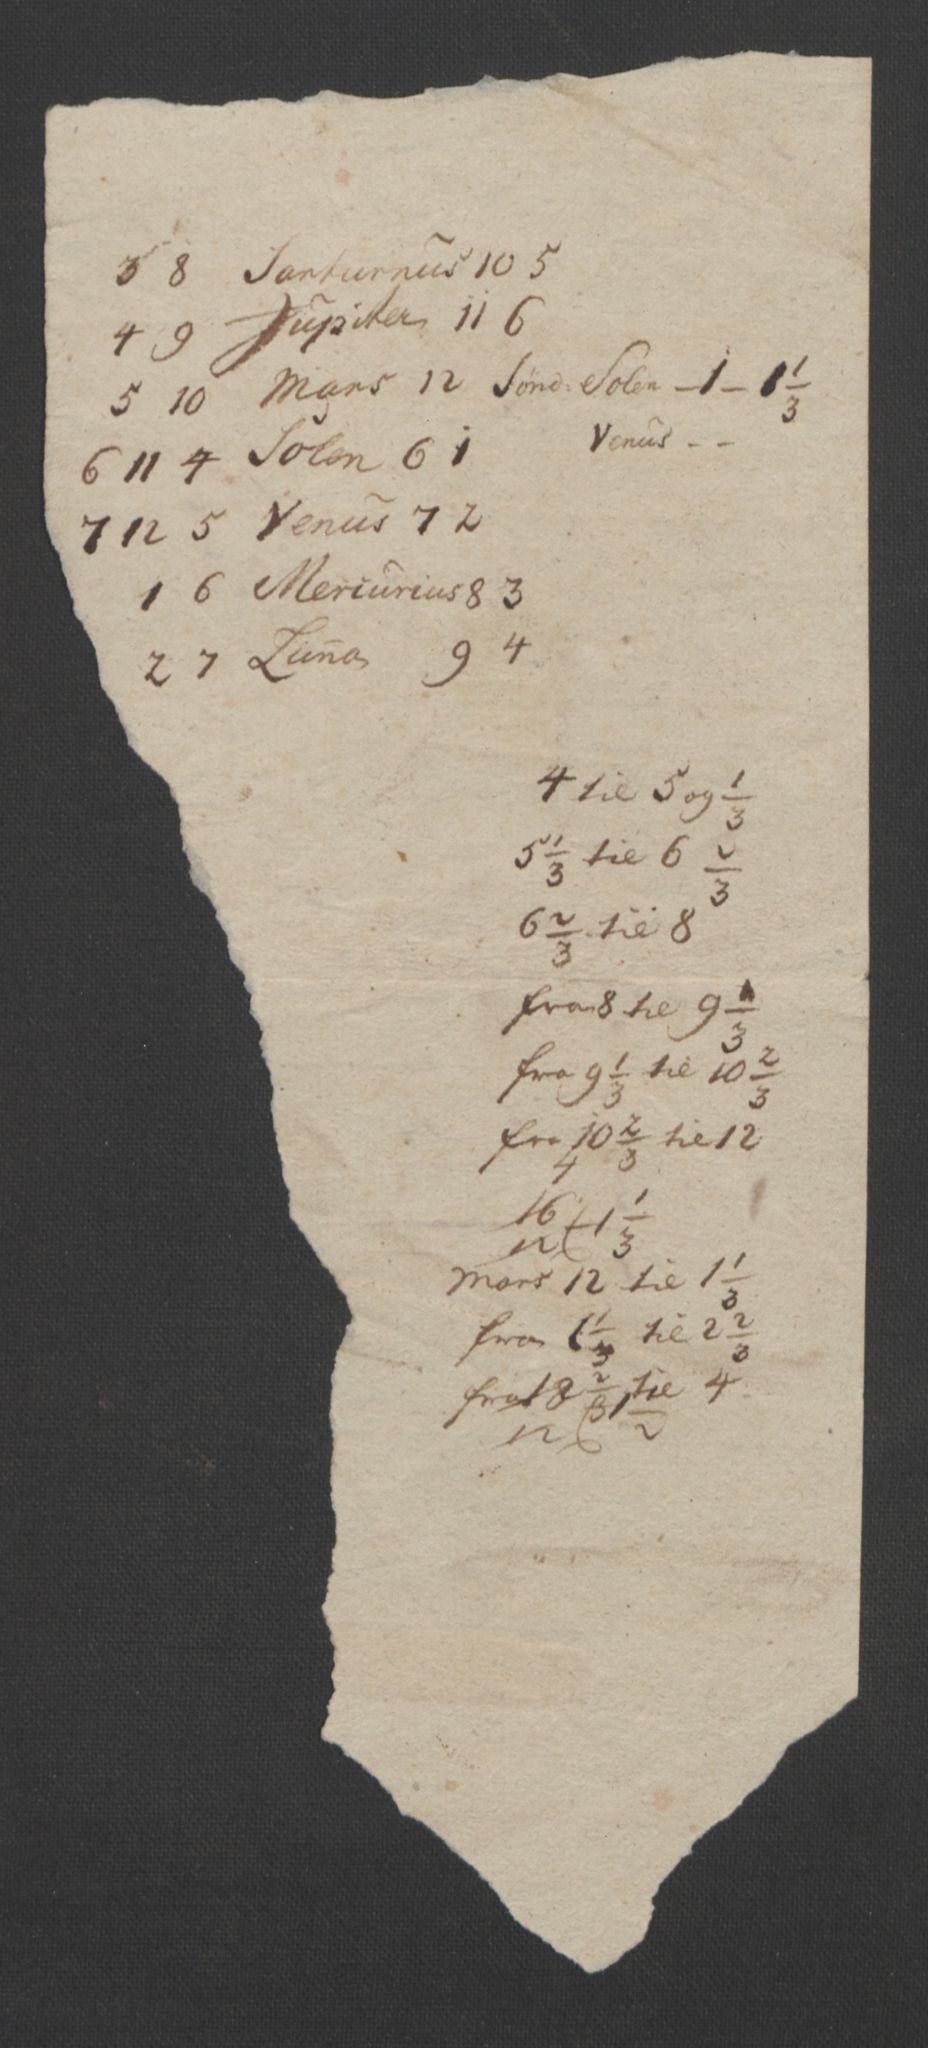 3 8 Santurnus 10 5
4 9 Jupiter 11 6
5 10 Mars 12 Sönd. Solen – 1 – 1 1/3
6 11 4 Solen 6 1 Venus - -
7 12 5 Venus 7 2
1 6 Meriurius 8 3
2 7 Luna 9 4
4 til 5 og 1/3
5 1/3 til 6 2/3
6 2/3 til 8
fra 8 til 9 1/3
fra 9 1/3 til 10 2/3
fra 10 2/3 til 12
4
16
12 ( 1 1/3
Mars 12 til 1 1/3
fra 1 1/3 til 2 2/3
fra 2/3 til 4
18
12 ( 1 1/2